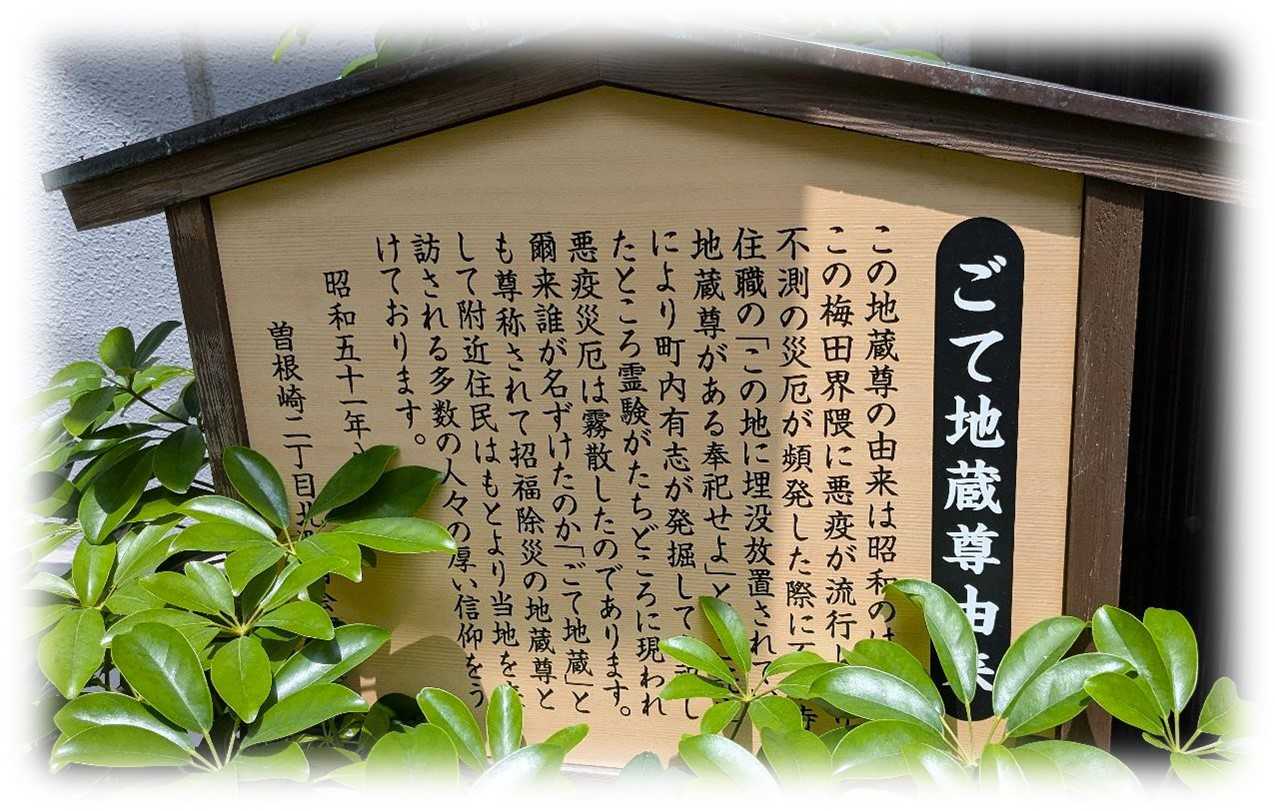 ごて地蔵尊由来
この地蔵尊の由来は昭和の
この梅田界隈に悪疫が流行し
不測の災厄が頻発した際に
住職の「この地に埋没放置されて
地蔵尊がある奉祀せよ」と
により町内有志が発掘して
たところ霊験がたちどころに現われ
悪疫災厄は霧散したのであります。
爾来誰が名ずけたのか「ごて地蔵」と
も尊称されて招福除災の地蔵尊と
して附近住民はもとより当地を
訪される多数の人々の厚い信仰をう
けております。
昭和五十一年
曽根崎二丁目北